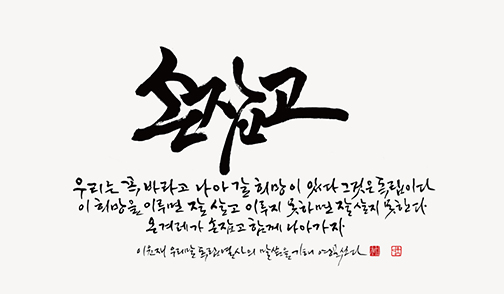 손잡고
우리는 꼭, 바라고 나아갈 희망이 있다 그것은 독립이다
이 희망을 이루면 잘 살고 이루지 못하면 잘 살지 못한다
온겨레가 손잡고 함께 나아가자
이윤재 우리말 독립열사의 말씀을 기해 쓰다